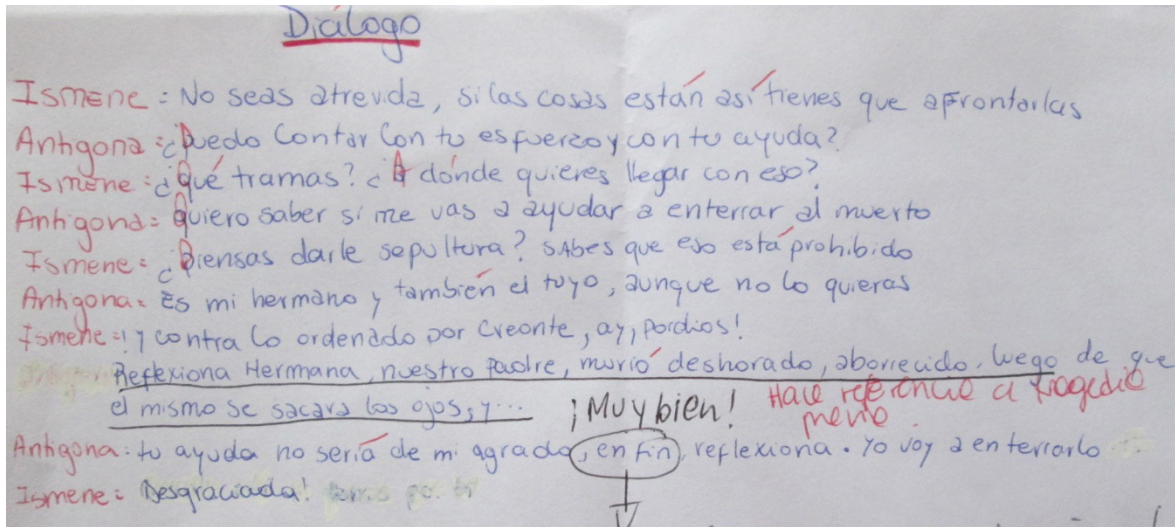 Diálogo
Ismene: No seas atrevida, si las cosas están así tienes que afrontarlas
Antigona: ¿Puedo contar con tu esfuerzo y con tu ayuda?
Ismene: ¿Qué tramas? ¿A dónde quieres llegar con eso?
Antigona: Quiero saber si me vas a ayudar a enterrar al muerto
Ismene: ¿Piensas darle sepultura? sabes que eso está prohibido
Antigona: Es mi hermano y también el tuyo, aunque no lo quieras
Ismene: ¡y contra lo ordenado por Creonte, ay, por dios!
Reflexiona Hermana, nuestro padre, murió deshorado, aborrecido, luego de que
el mismo se sacara los ojos, y...
¡Muy bien!
Hace referencia a tragedia
Antigona: tu ayuda no sería de mi agrado, en fin, reflexiona. Yo voy a enterrarlo
Ismene: Desgraciada!